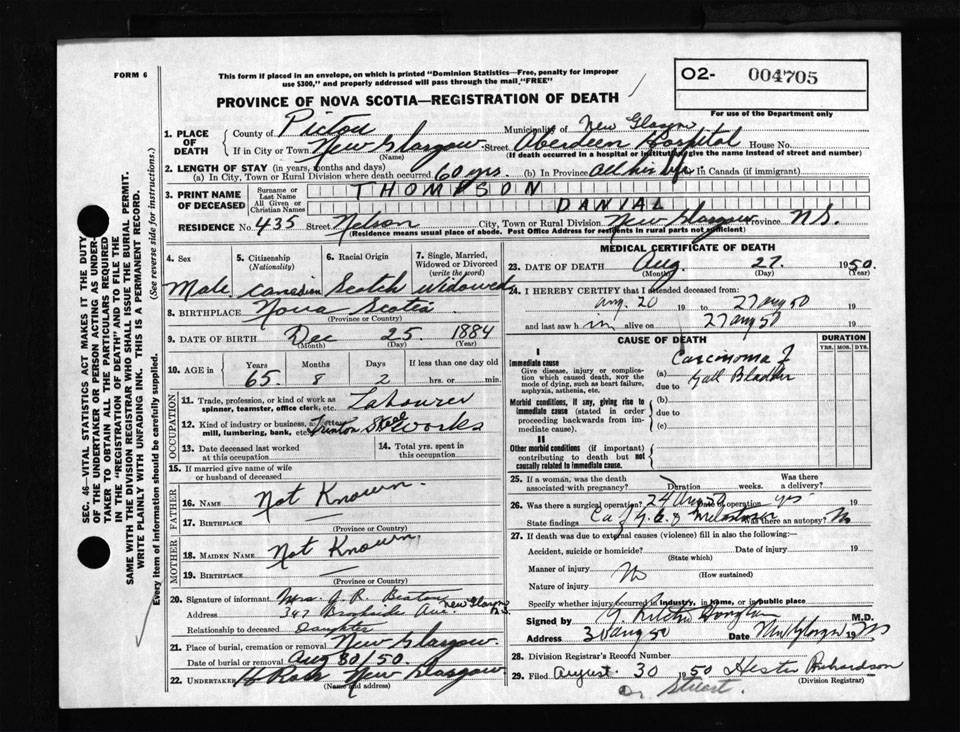 FORM 6
This form if placed in an envelope, on which is printed "Dominion Statistics—Free, penalty for improper
use $300," and properly addressed will pass through the mail, "FREE"
O2- 004705
For use of the Department only
PROVINCE OF NOVA SCOTIA—REGISTRATION OF DEATH
1. PLACE OF DEATH
County of Pictou Municipality of New Glasgow
If in City or Town New Glasgow Street Aberdeen Hospital House No.
(Name) (If death occurred in a hospital or institution give the name instead of street and number)
2. LENGTH OF STAY (in years, months and days)
(a) In City, Town or Rural Division where death occurred 60 yrs. (b) In Province All his life In Canada (if immigrant)
3. PRINT NAME OF DECEASED
Surname or Last Name THOMPSON
All Given or Christian Names DANIAL
RESIDENCE No. 435 Street Nelson City, Town or Rural Division New Glasgow Province N.S.
(Residence means usual place of abode. Post Office Address for residents in rural parts not sufficient)
4. Sex 5. Citizenship (Nationality) 6. Racial Origin 7. Single, Married, Widowed or Divorced (write the word)
Male Canadian Scotch Widowed
8. BIRTHPLACE Nova Scotia
(Province or Country)
9. DATE OF BIRTH Dec 25 1884
(Month) (Day) (Year)
10. AGE in Years Months Days If less than one day old
65 8 2 hrs. or min.
OCCUPATION
11. Trade, profession, or kind of work as
spinner, teamster, office clerk, etc. Labourer
12. Kind of industry or business, as cotton
mill, lumbering, bank, etc. Trenton Steel Works
13. Date deceased last worked at this occupation
14. Total yrs. spent in this occupation
15. If married give name of wife
or husband of deceased
FATHER
16. NAME Not Known.
17. BIRTHPLACE —
(Province or Country)
MOTHER
18. MAIDEN NAME Not Known.
19. BIRTHPLACE —
(Province or Country)
20. Signature of informant Mrs. J. R. Beaton
Address 347 Brookside Ave. New Glasgow N.S.
Relationship to deceased Daughter
21. Place of burial, cremation or removal New Glasgow.
Date of burial or removal Aug 30/50.
22. UNDERTAKER H Ross New Glasgow
(Name and address)
MEDICAL CERTIFICATE OF DEATH
23. DATE OF DEATH Aug. 27 1950
(Month) (Day) (Year)
24. I HEREBY CERTIFY that I attended deceased from:
Aug. 20 19 to 27 Aug 50 19
and last saw him alive on 27 Aug 50 19
CAUSE OF DEATH
DURATION
YRS. MOS. DYS.
I
Immediate cause
Give disease, injury or complication which caused death, not the mode of dying, such as heart failure, asphyxia, asthenia, etc.
(a) Carcinoma of
due to Gall Bladder
Morbid conditions, if any, giving rise to immediate cause (stated in order proceeding backwards from immediate cause).
(b)
due to
(c)
II
Other morbid conditions (if important) contributing to death but not causally related to immediate cause.
25. If a woman, was the death associated with pregnancy? Duration weeks. Was there a delivery?
26. Was there a surgical operation? 24 Aug 50 Date of operation yes 19
State findings Ca of G.B. & Was there an autopsy? No
27. If death was due to external causes (violence) fill in also the following:—
Accident, suicide or homicide? Date of injury 19
(State which)
Manner of injury No
(How sustained)
Nature of injury
Specify whether injury occurred in industry, in home, or in public place
Signed by M.D.
Address 30 Aug 50 Date New Glasgow 19
28. Division Registrar's Record Number
29. Filed August 30 1950 Hester Richardson
(Division Registrar)
Dr. Stuart.
SEC. 46—VITAL STATISTICS ACT MAKES IT THE DUTY
OF THE UNDERTAKER OR PERSON ACTING AS UNDER-
TAKER TO OBTAIN ALL THE PARTICULARS REQUIRED
IN THE "REGISTRATION OF DEATH" AND TO FILE THE
SAME WITH THE DIVISION REGISTRAR WHO SHALL ISSUE THE BURIAL PERMIT.
WRITE PLAINLY WITH UNFADING INK. THIS IS A PERMANENT RECORD.
Every item of information should be carefully supplied. (See reverse side for instructions.)